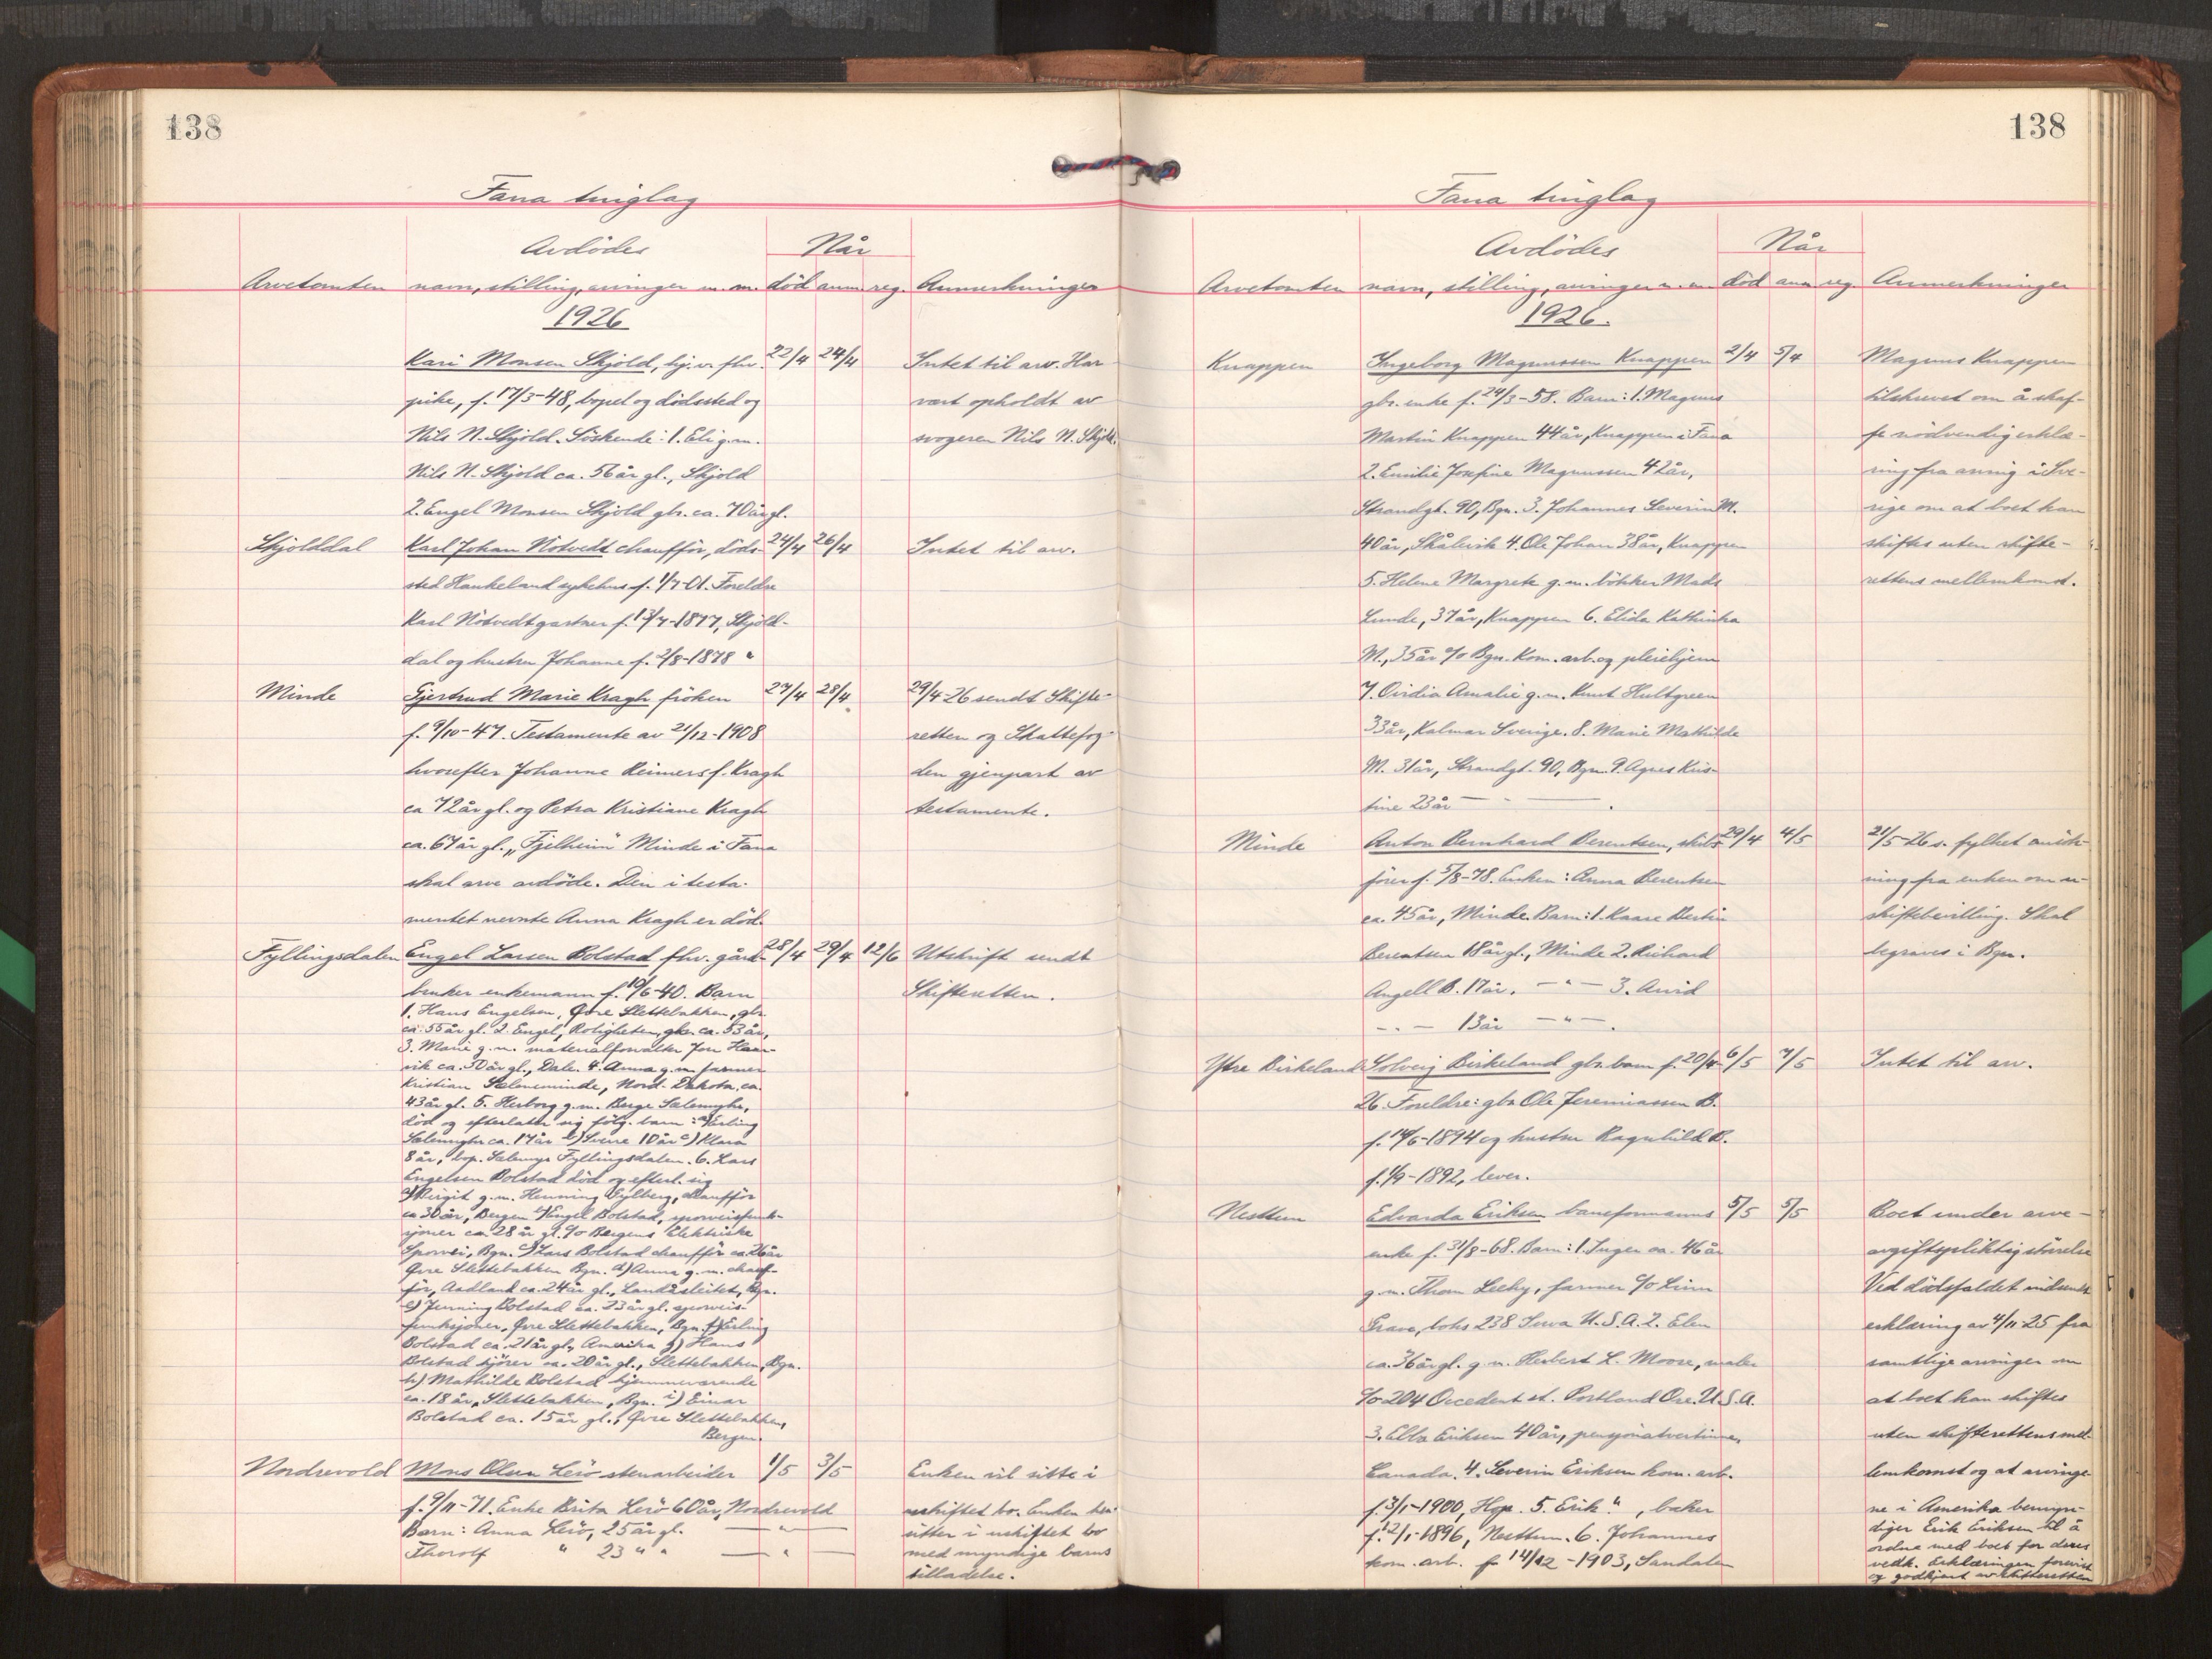 138
Fana tinglag
Avdödes
Når
Arvetomten navn, stilling, arvinger m. m. död anm. reg. Anmerkninger
1926
Kari Monsen Skjold, hj. v. fhv. 22/4 24/4 Intet til arv. Har
pike, f. 17/3-48, bopel og dödssted og vært opholdt av
Nils N. Skjold. Söskende: 1. Eli g.m. svogeren Nils N. Skjold.
Nils N. Skjold ca. 56 år gl., Skjold
2. Engel Monsen Skjold gbr. ca. 70 år gl.
Skjolddal Karl Johan Nötvedt chaufför, döds- 24/4 26/4 Intet til arv.
sted Haukeland sykehus f. 1/7-01. Foreldre
Karl Nötvedt gartner f. 13/7-1877, Skjöld-
dal og hustru Johanne f. 2/8-1878 "
Minde Gjertrud Marie Kragh fröken 27/4 28/4 29/4-26 sendt Skifte-
f. 9/10-47. Testamente av 21/12-1908 retten og Skattefog-
hvorefter Johanne Reimers f. Kragh den gjenpart av
ca 72 år gl. og Petra Kristiane Kragh testamente.
ca. 67 år gl. "Fjellheim" Minde i Fana
skal arve avdöde. Den i testa-
mentet nevnte Anna Kragh er död.
Fyllingsdalen Engel Larsen Bolstad fhv. gård- 28/4 29/4 12/6 Utskrift sendt
bruker enkemann f. 10/6-40. Barn Skifteretten.
1. Hans Engelsen, Övre Slettebakken, gbr.
ca. 55 år gl. 2. Engel, Roligheten, gbr. ca. 53 år,
3. Marie g. m. materialforvalter Jon Haar-
vik ca. 50 år gl., Dale. 4. Anna g. m. farmer
Kristian Seleneminde, Nord-Dakota, ca.
43 år gl. 5. Herborg g. m. Berge Sælemyhr,
död og efterlatt sig fölg. barn: a) Erling
Sælemyhr ca. 17 år b) Sverre 10 år c) Klara
8 år, bop. Sælemyr Fyllingsdalen. 6. Lars
Engelsen Bolstad död og efterl. sig
a) Birgit g. m. Henning Gylberg, chaufför
ca 30 år, Bergen b) Engel Bolstad, sporveisfunk-
sjonær ca. 28 år gl. c/o Bergens Elektriske
Sporvei, Bgn. c) Lars Bolstad chaufför ca. 26 år
Övre Slettebakken Bgn. d) Anna g. m. chauf-
för, Aadland ca. 24 år gl., Landåsleitet, Bgn.
e) Henning Bolstad ca. 23 år gl. sporveis-
funksjonær, Övre Slettebakken, Bgn. f) Erling
Bolstad ca. 21 år gl., Amerika g) Hans
Bolstad kjörer ca. 20 år gl., Slettebakken, Bgn.
h) Mathilde Bolstad hjemmeværende
ca. 18 år, Slettebakken, Bgn. i) Einar
Bolstad ca. 15 år gl., Övre Slettebakken,
Bergen.
Nordrevold Mons Olsen Lerö stenarbeider 1/5 3/5 Enken vil sitte i
f. 9/11-71. Enke Brita Lerö 60 år, Nordrevold uskiftet bo. Enken hen-
Barn: Anna Lerö, 25 år gl. — " — sitter i uskiftet bo
Thorolf " 23 " " — " — med myndige barns
tilladelse.
138
Fana tinglag
Avdödes
Når
Arvetomten navn, stilling, arvinger m. m. död anm reg. Anmerkninger
1926.
Knappen Ingeborg Magnussen Knappen 2/4 5/4 Magnus Knappen
gbr. enke f. 24/3-58. Barn: 1. Magnus tilskrevet om å skaf-
Martin Knappen 44 år, Knappen i Fana fe nödvendig erklæ-
2. Emilie Josefine Magnussen 42 år, ring fra arving i Sve-
Strandgt. 90, Bgn. 3. Johannes Severin M. rige om at boet kan
40 år, Skålevik 4. Ole Johan 38 år, Knappen skiftes uten skifte-
5. Helene Margrete g. m. bökker Mads rettens mellemkomst.
Lunde, 37 år, Knappen 6. Elida Kathinka
M., 35 år c/o Bgn. Kom. arb. og pleiehjem
7. Ovidia Amalie g. m. Knut Hultgreen
33 år, Kalmar Sverige. 8. Marie Mathilde
M. 31 år, Strandgt. 90, Bgn. 9. Agnes Kris-
tine 23 år — " —.
Minde Anton Bernhard Berentsen, skibs- 29/4 4/5 21/5-26 s. fylket ansök-
förer f. 5/8-78. Enken: Anna Berentsen ning fra enken om u-
ca. 45 år, Minde. Barn: 1. Kaare Bertin skiftebevilling. Skal
Berentsen 18 år gl., Minde 2. Richard begraves i Bgn.
Angell B. 17 år. — " — 3. Arvid
— " — 13 år — " —.
Ytre Birkeland Solveig Birkeland gbr. barn f. 20/4- 6/5 7/5 Intet til arv.
26. Foreldre: gbr. Ole Jeremiassen B.
f. 14/6-1894 og hustru Ragnhild B.
f. 1/9-1892, lever.
Nesttun Edvarda Eriksen baneformanns 5/5 5/5 Boet under arve-
enke f. 31/8-68. Barn: 1. Inger ca. 46 år avgiftspliktig störrelse
g. m. Thom Leehy, farmer c/o Linn Ved dödsfaldet innsendt
Grave, boks 238 Iowa U.S.A. 2. Elen erklæring av 4/11 25 fra
ca. 36 år gl. g. m. Herbert L. Moore, maler samtlige arvinger om
c/o 204 Occedent st. Portland Ore. U.S.A. at boet kan skiftes
3. Ella Eriksen 40 år, pensjonatvertinne, uten skifterettens mel-
Canada. 4. Severin Eriksen kom. arb. lemkomst og at arvinge-
f. 3/1-1900, Hop. 5. Erik " , baker ne i Amerika bemyn-
f. 12/1-1896, Nesttun. 6. Johannes diger Erik Eriksen til å
kom. arb. f. 14/12-1903, Sandalen ordne med boet for deres
vedk. Erklæringen forevist
og godkjent av Skifteretten